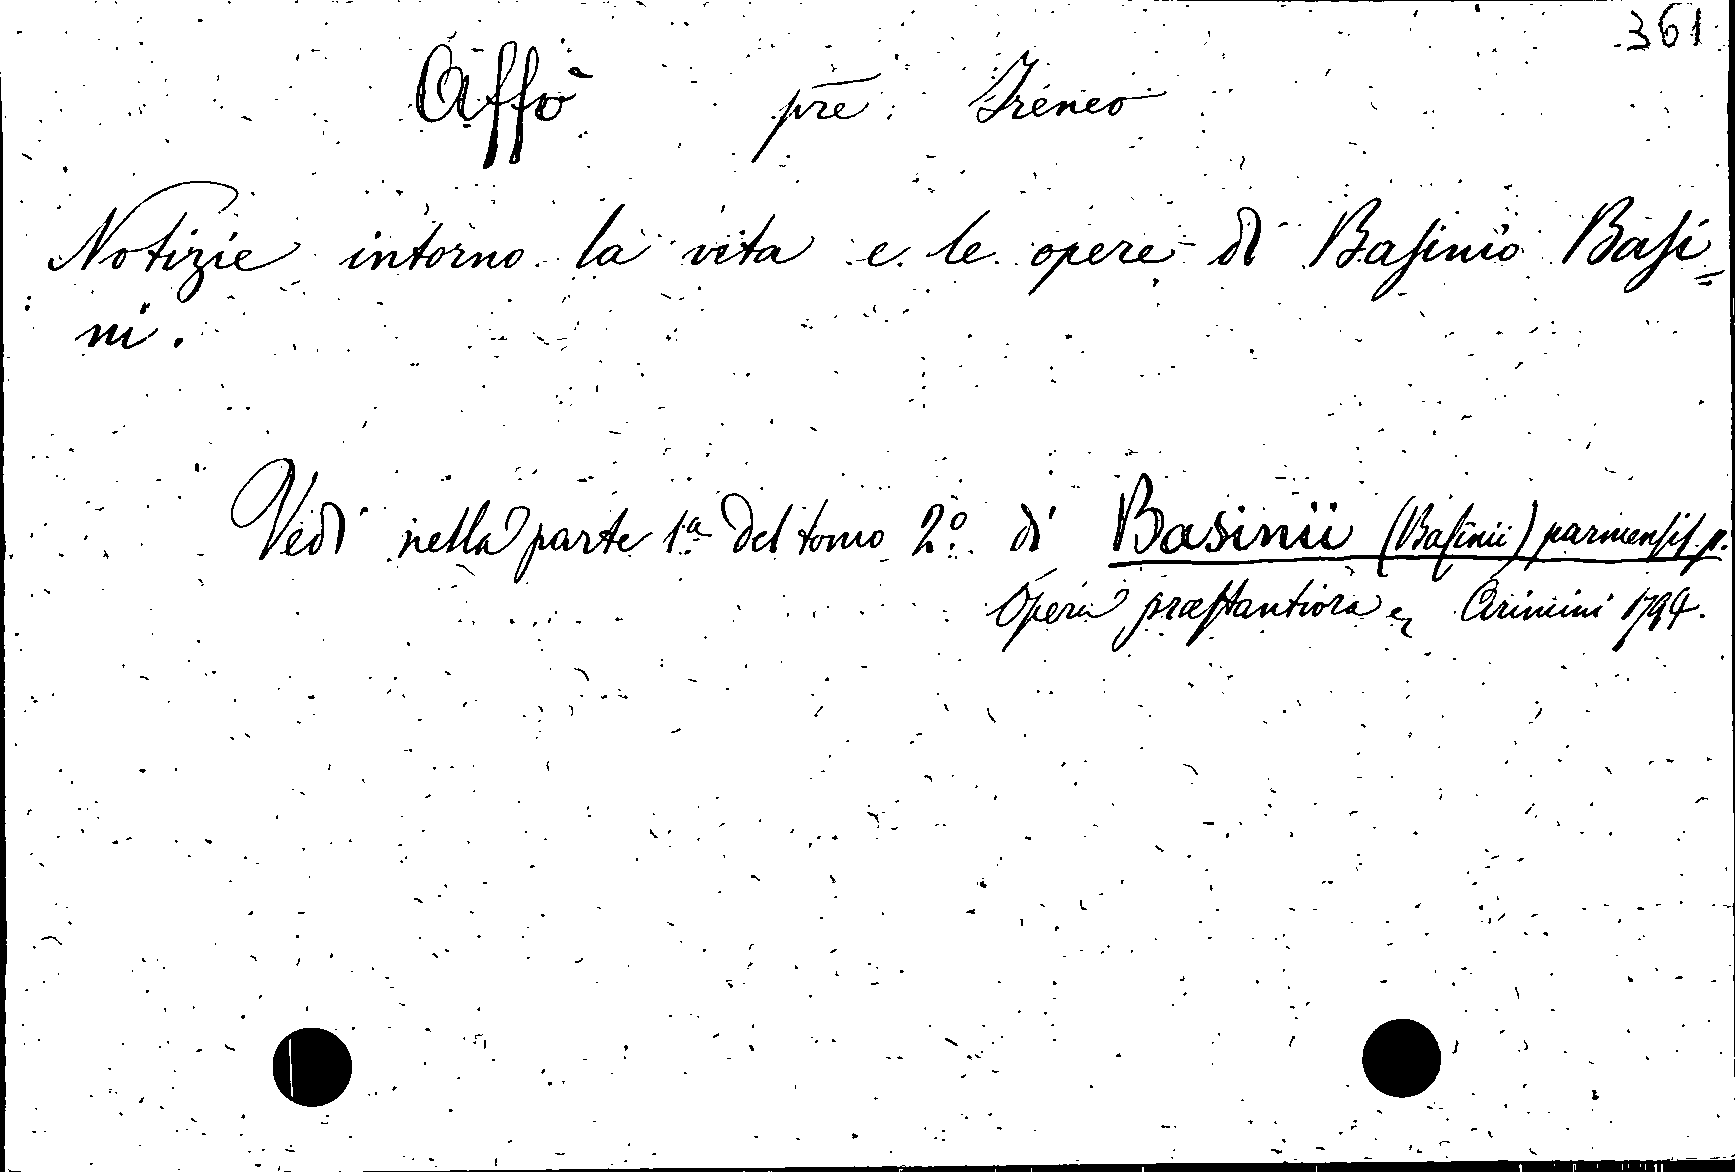 361
Affò pre: Ireneo
Notizie intorno la vita e le opere di Basinio Basi=
ni.
Vedi nella parte 1ª del tomo 2º di Basinii (Basinii) parmensis p.
Opera præstantiora, Arimini 1794.